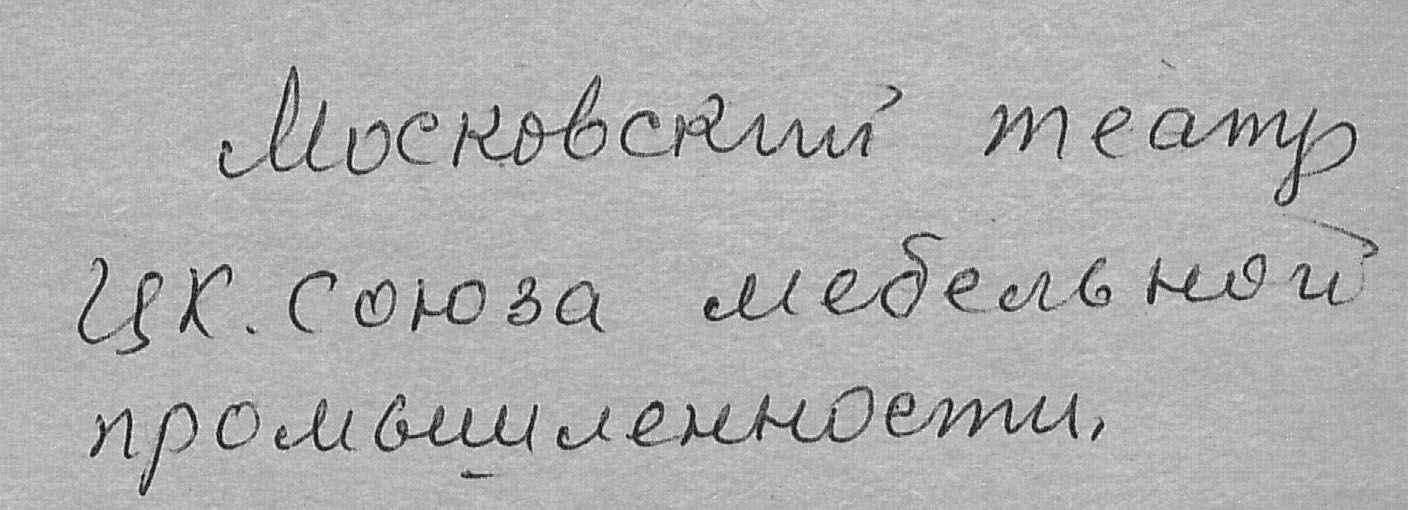 Московский театр
ЦК. союза мебельной
промышленности.